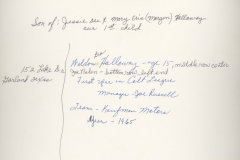 Son of: Jessie Lee & Mary Lois (Morgan) Holloway
our 1st child
152 Lake Dr
Garland Texas
Weldon Holloway - age 15, middle row center
Notation - bottom row, left end
First year in Colt League
Manager - Joe Russell
Team - Kaufman Motors
Year - 1965